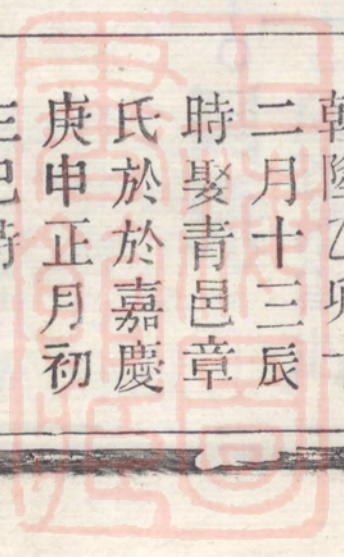 乾隆乙卯十
二月十三辰
時娶青邑章
氏於於嘉慶
庚申正月初
三巳時